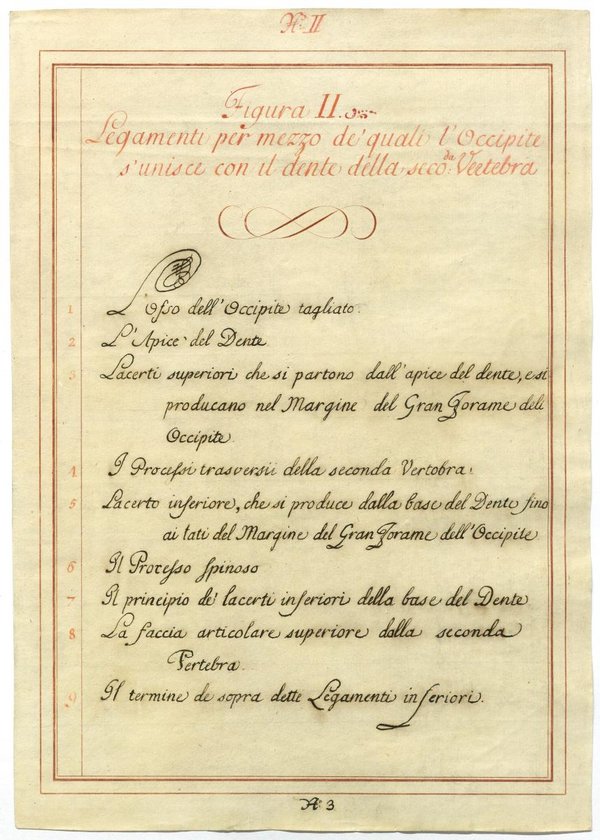 N.º II
Figura II.
Legamenti per mezzo de' quali l'Occipite
s'unisce con il dente della seco.da Veetebra
1 L'Osso dell'Occipite tagliato.
2 L'Apice del Dente
3 Lacerti superiori che si partono dall'apice del dente, e si
producano nel Margine del Gran Forame dell
Occipite.
4 I Processi trasversii della seconda Vertobra.
5 Lacerto inferiore, che si produce dalla base del Dente fino
ai lati del Margine del Gran Forame dell'Occipite
6 Il Processo spinoso
7 Il principio de' lacerti inferiori della base del Dente
8 La faccia articolare superiore dalla seconda
Vertebra.
9 Il termine de sopra dette Legamenti inferiori.
N.º 3